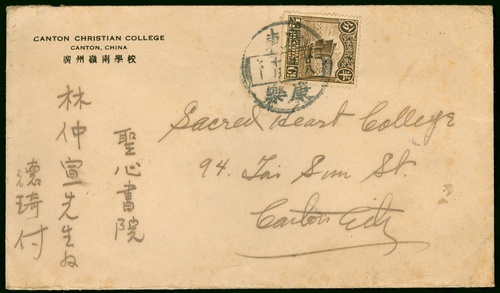 CANTON CHRISTIAN COLLEGE
CANTON, CHINA
廣州嶺南學校
康樂
Sacred Heart College
94. Tai Sun St.
Canton City
聖心書院
林仲宣先生
德琦付